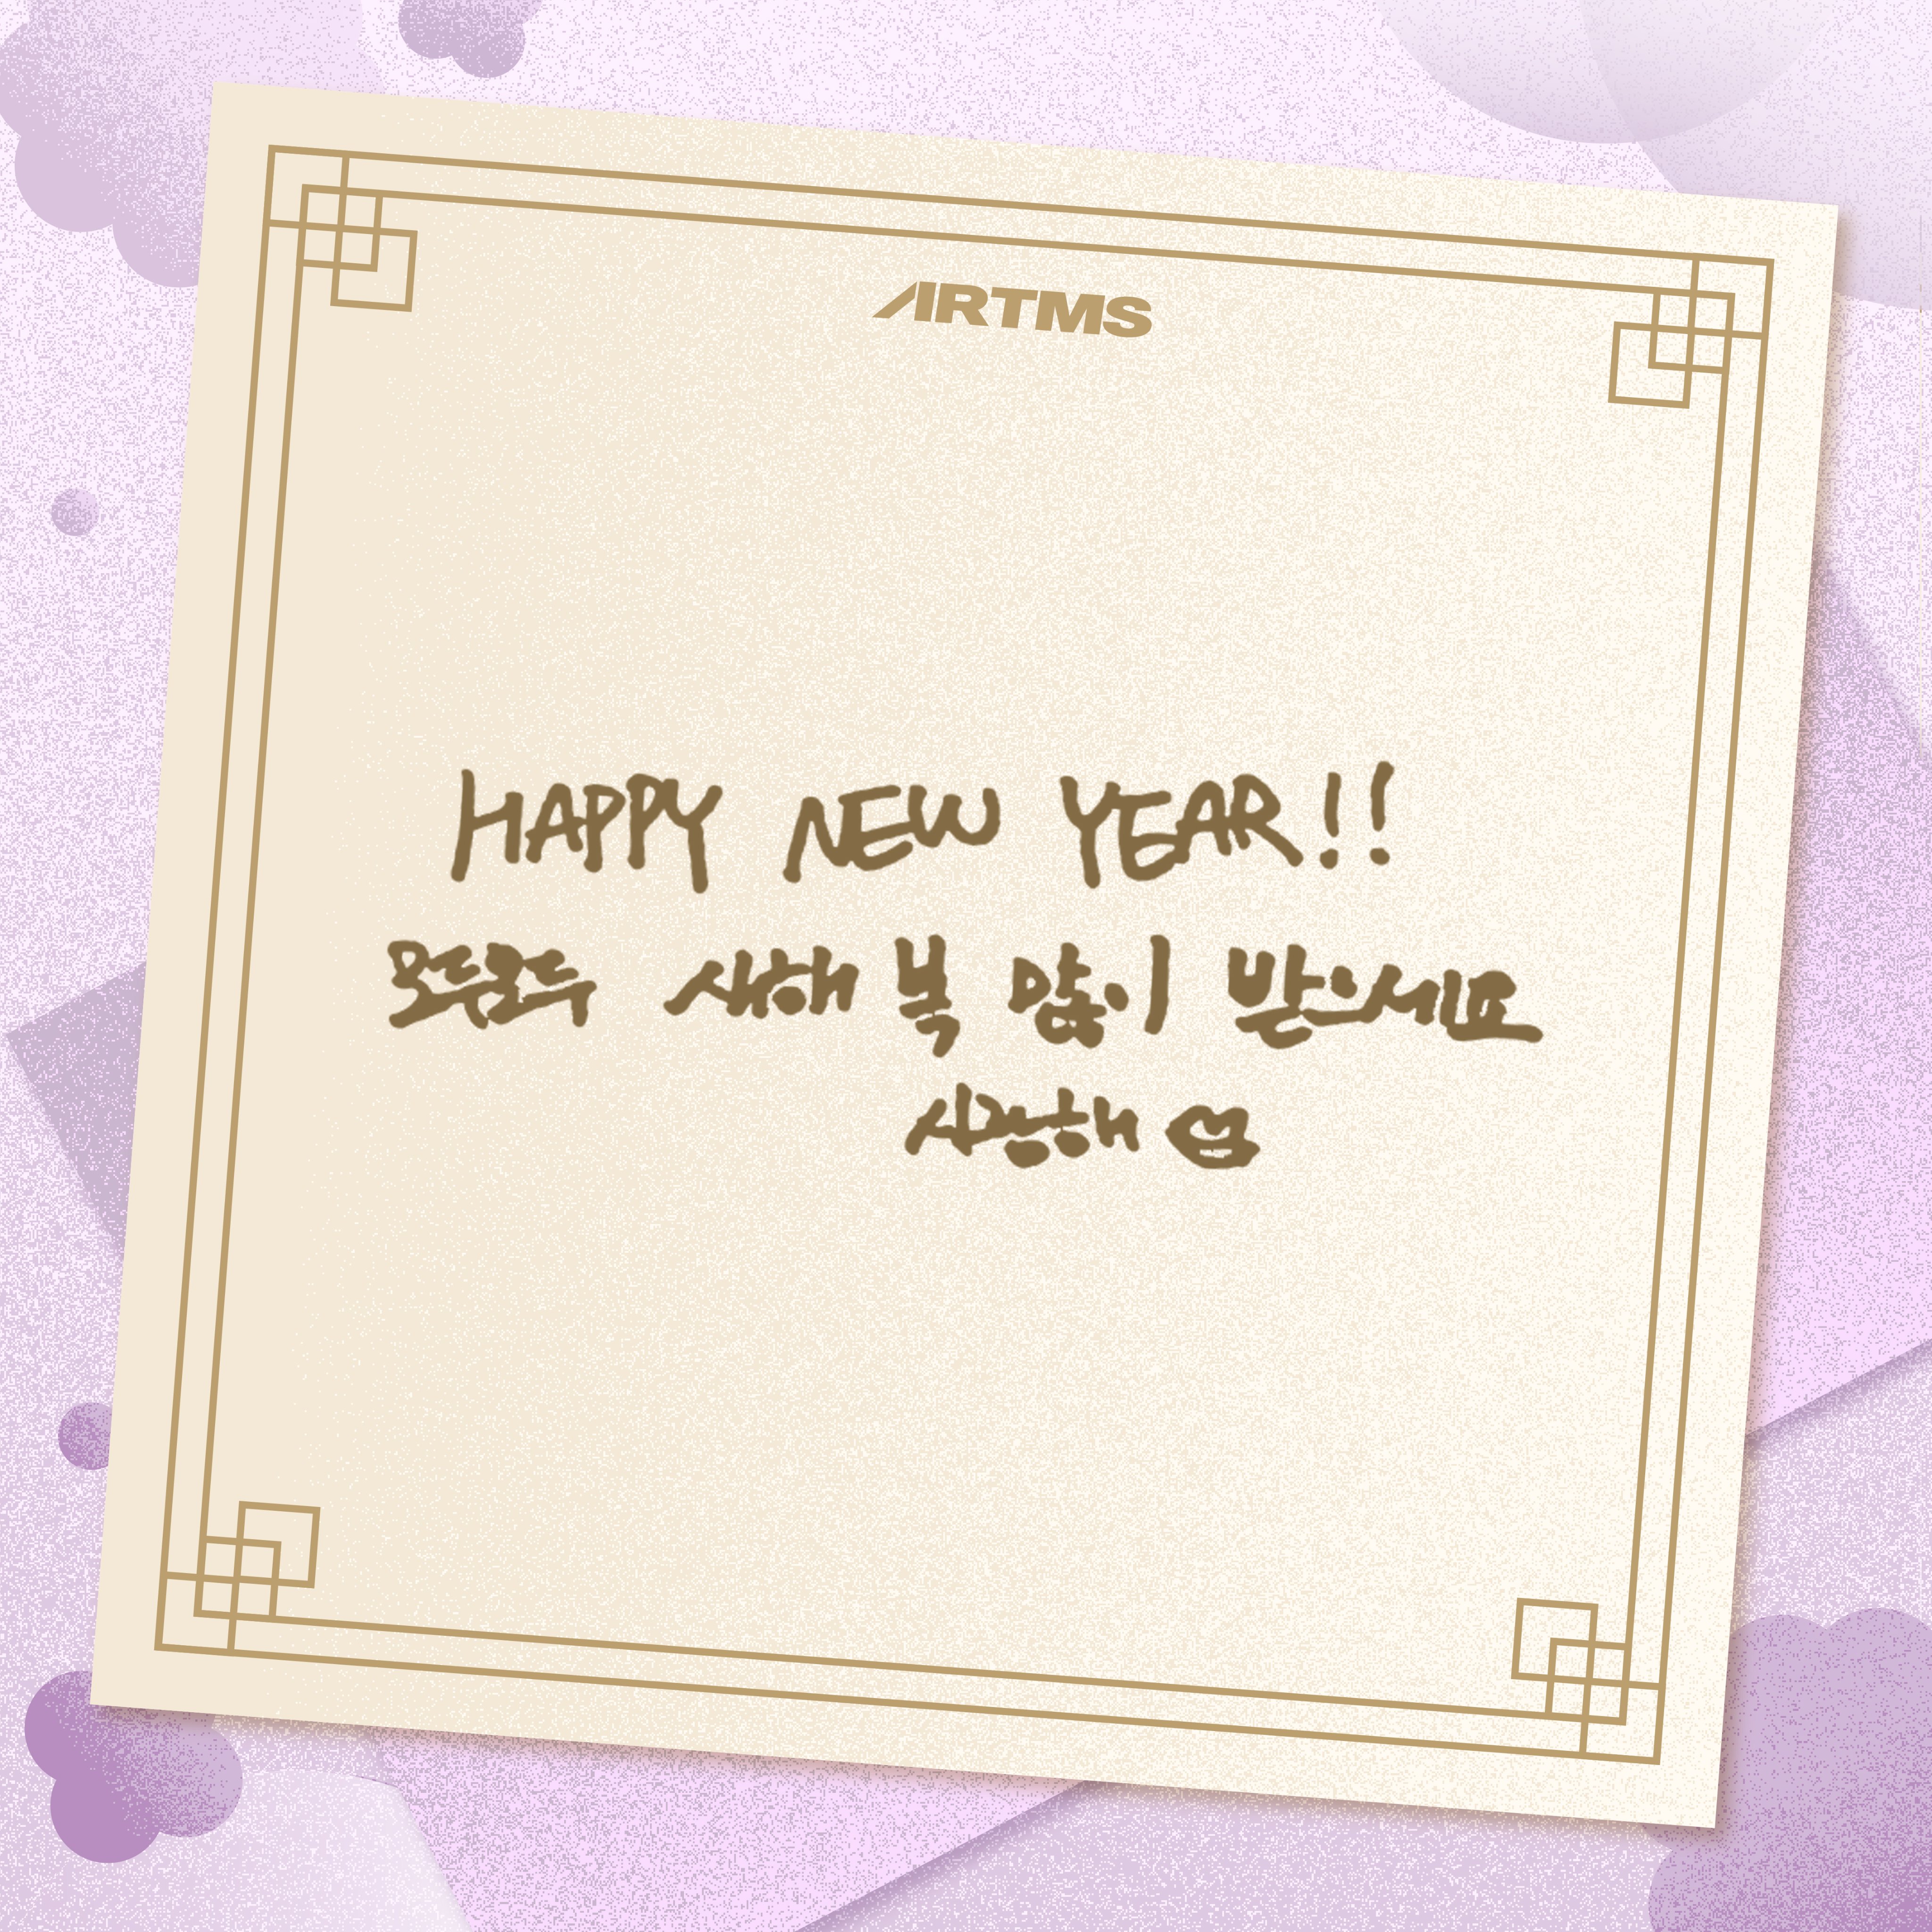 ARTMS
HAPPY NEW YEAR!!
모두모두 새해 복 많이 받으세요
사랑해